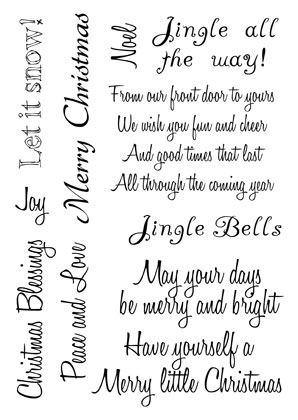 Let it snow!
Merry Christmas
Noel
Jingle all
the way!
From our front door to yours
We wish you fun and cheer
And good times that last
All through the coming year
Joy
Christmas Blessings
Peace and Love
Jingle Bells
May your days
be merry and bright
Have yourself a
Merry little Christmas